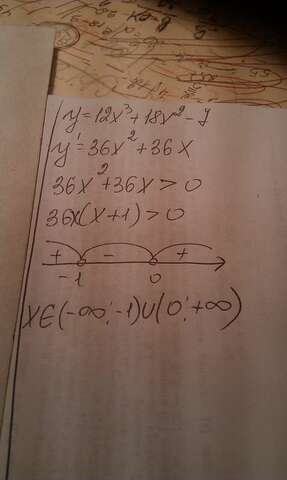 y=12x³+18x²-7
y'=36x²+36x
36x²+36x>0
36x(x+1)>0
+ - +
-1 0
x∈(-∞;-1)∪(0;+∞)